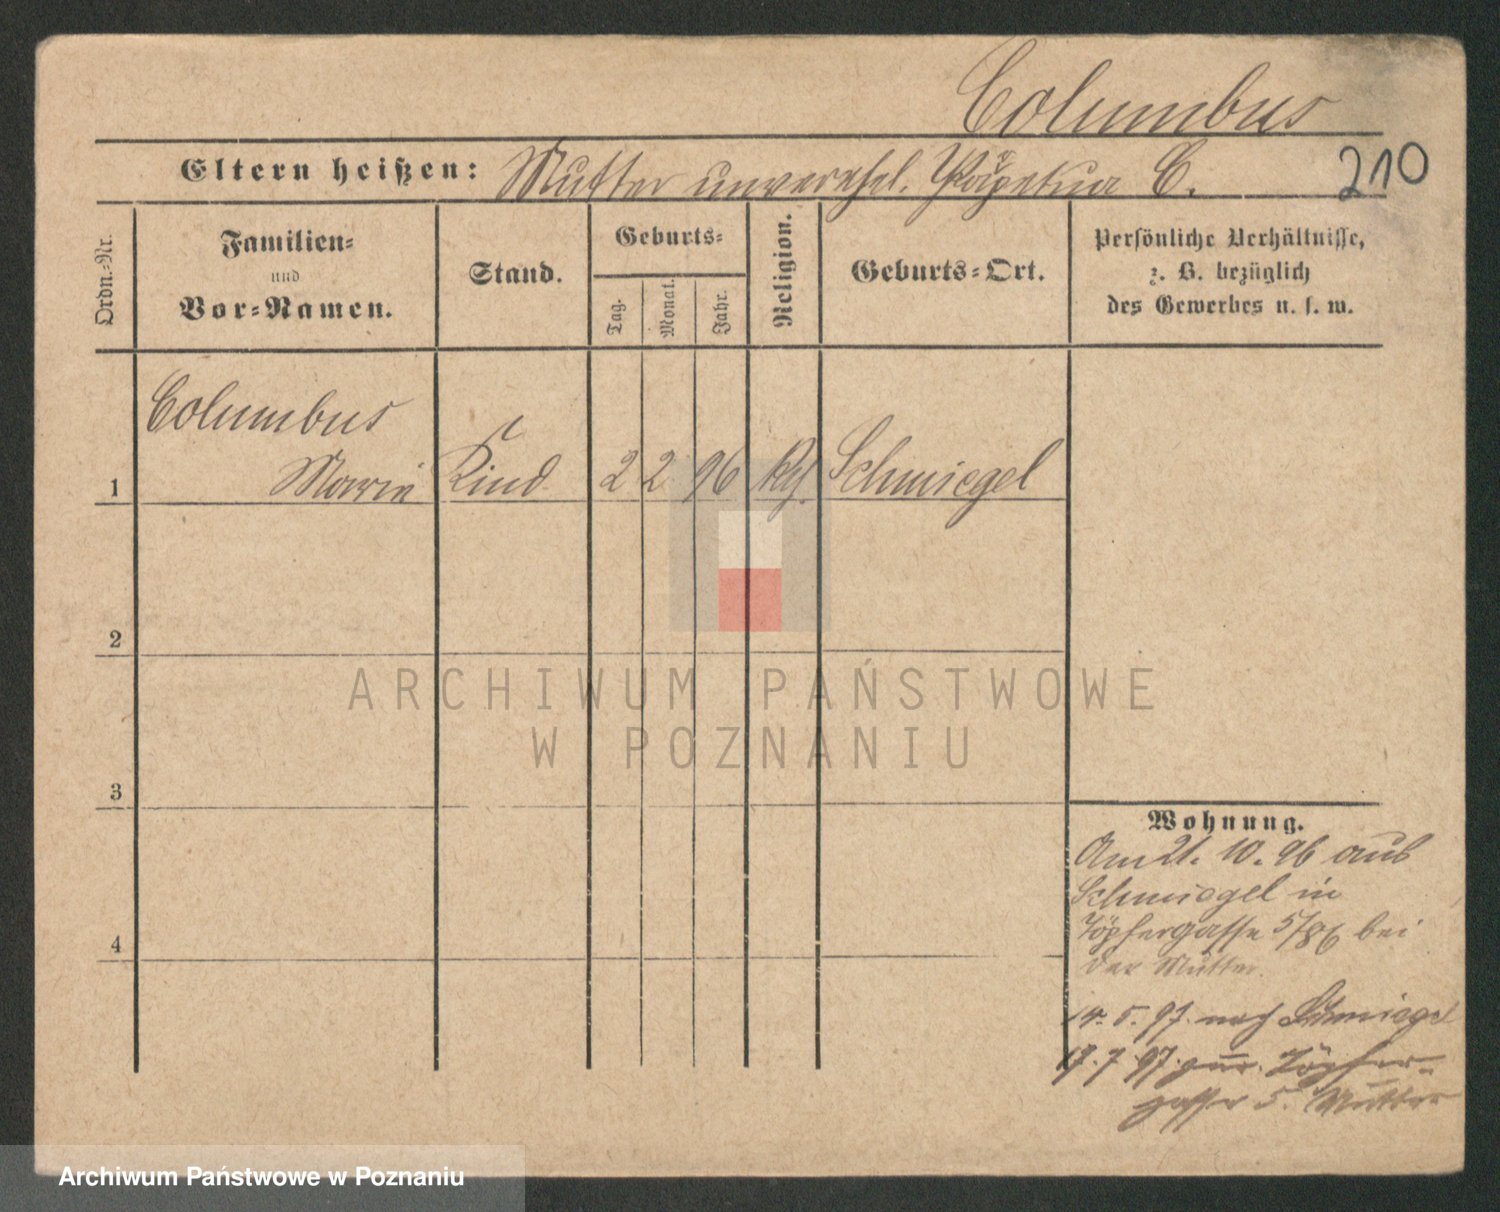 Columbus
Eltern heißen: Mutter unverehel. Perpetua C.
210
Ordn.-Nr.
Familien-
und
Vor-Namen.
Stand.
Geburts-
Tag.
Monat.
Jahr.
Religion.
Geburts-Ort.
Persönliche Verhältnisse,
z. B. bezüglich
des Gewerbes u. s. w.
Columbus
1 Marie Kind 2 2 96 Schmiegel
2
3
4
ARCHIWUM PAŃSTWOWE
W POZNANIU
Wohnung.
Am 21. 10. 96 aus
Schmiegel in
Töpfergasse bei
der Mutter.
14. 5. 97 nach Schmiegel
19. 7 97 zur. Töpfer-
gasse 5. Mutter
Archiwum Państwowe w Poznaniu